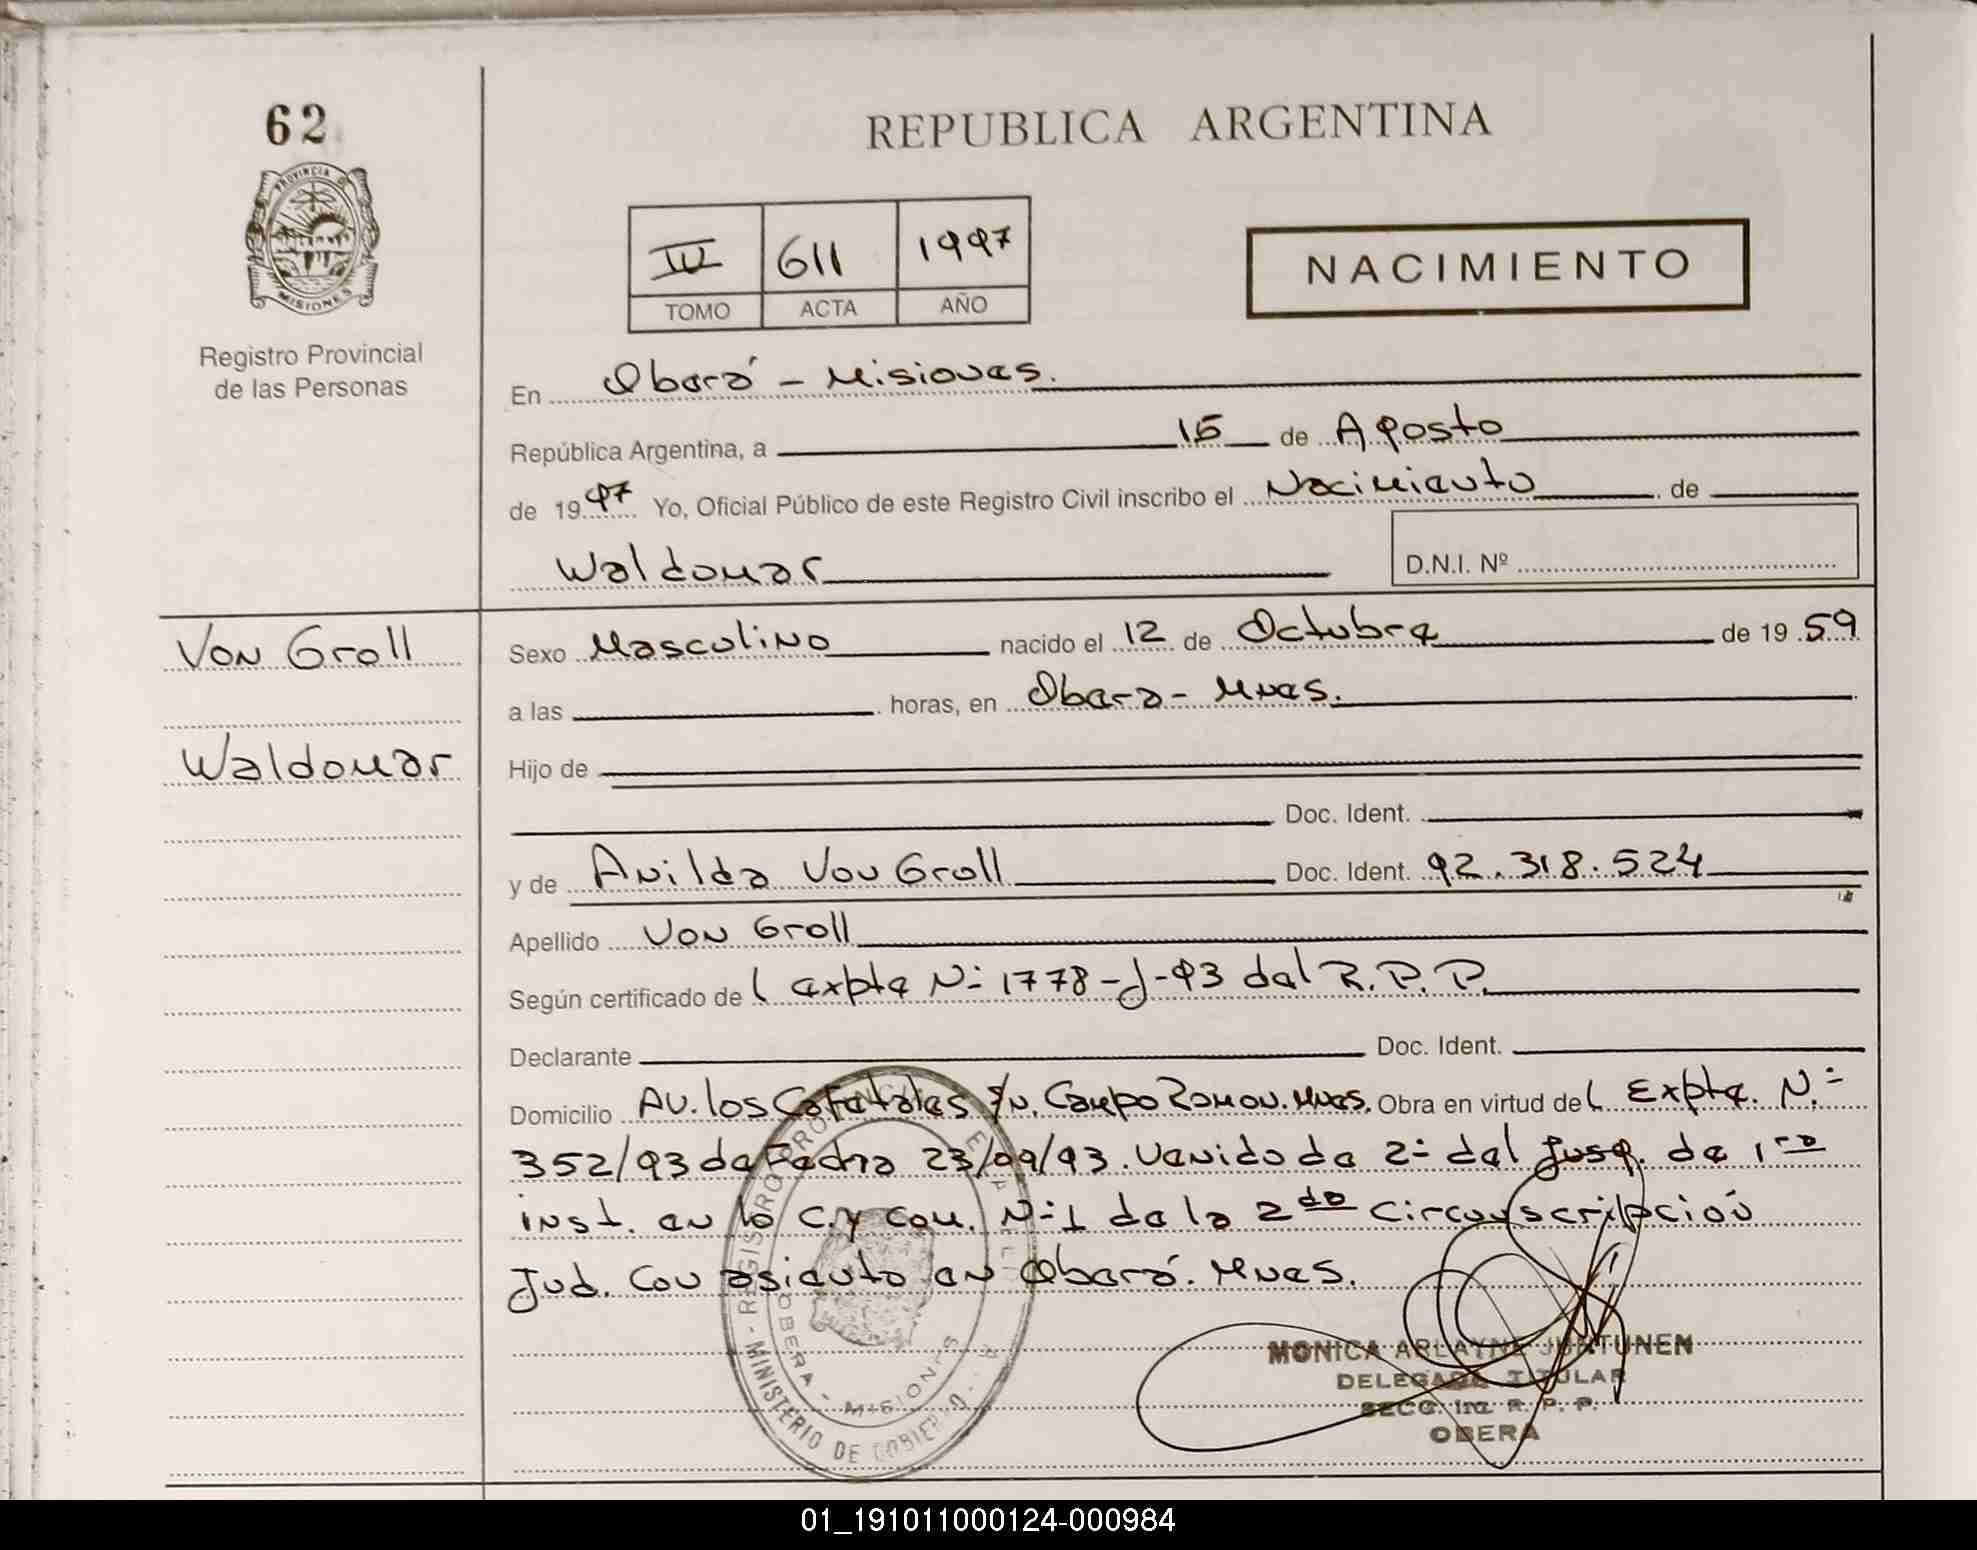 62
REPUBLICA ARGENTINA
PROVINCIA DE
MISIONES
Registro Provincial
de las Personas
IV 611 1997
TOMO ACTA AÑO
NACIMIENTO
En Oberá - Misiones.
República Argentina, a 15 de Agosto
de 1997 Yo, Oficial Público de este Registro Civil inscribo el Nacimiento de
Waldomar
D.N.I. Nº
Von Groll
Waldomar
Sexo Masculino nacido el 12 de Octubre de 1959
a las horas, en Obera - Mnes.
Hijo de
Doc. Ident.
y de Anilda Von Groll Doc. Ident. 92.318.524
Apellido Von Groll
Según certificado del expte Nº 1778-J-93 del R.P.P.
Declarante Doc. Ident.
Domicilio Av. los Cafetales S/N. Campo Ramon. Mnes. Obra en virtud del Expte. Nº
352/93 de Fecha 23/09/93. Venido de 2º del Jusg. de 1ra
inst. en lo C. y Com. Nº 1 de la 2da Circunscripción
Jud. Con asiento en Oberá. Mnes.
- REGISTRO PROVINCIAL DE LAS
- MINISTERIO DE GOBIERNO
OBERA - MISIONES
MONICA ARLAYNE JUNTUNEN
DELEGADA TITULAR
SECC. 1ra. R. P. P.
OBERA
01_191011000124-000984